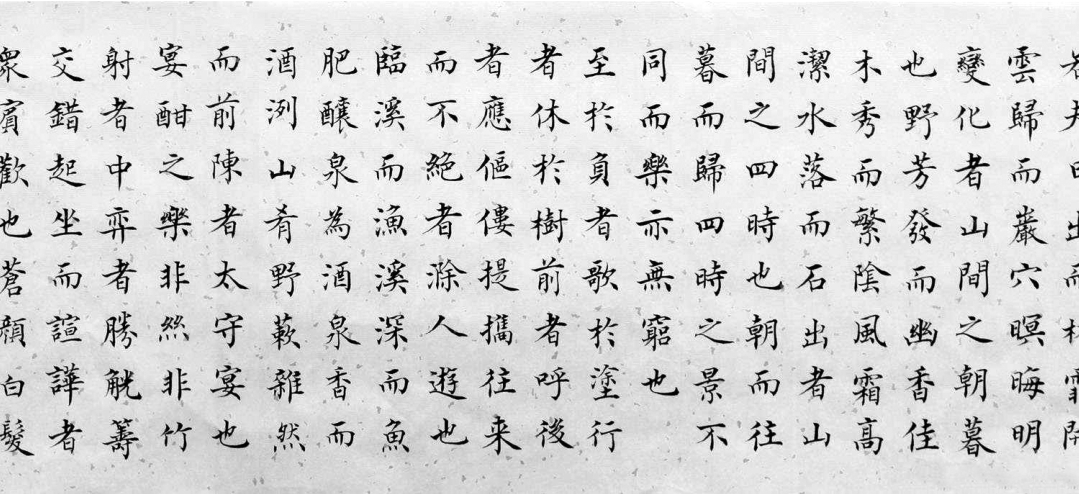 若夫日出而林霏開
雲歸而巖穴暝晦明
變化者山間之朝暮
也野芳發而幽香佳
木秀而繁陰風霜高
潔水落而石出者山
間之四時也朝而往
暮而歸四時之景不
同而樂亦無窮也
至於負者歌於塗行
者休於樹前者呼後
者應傴僂提攜往来
而不絶者滁人遊也
臨溪而漁溪深而魚
肥釀泉為酒泉香而
酒洌山肴野蔌雜然
而前陳者太守宴也
宴酣之樂非絲非竹
射者中弈者勝觥籌
交錯起坐而諠譁者
衆賓歡也蒼顔白髮